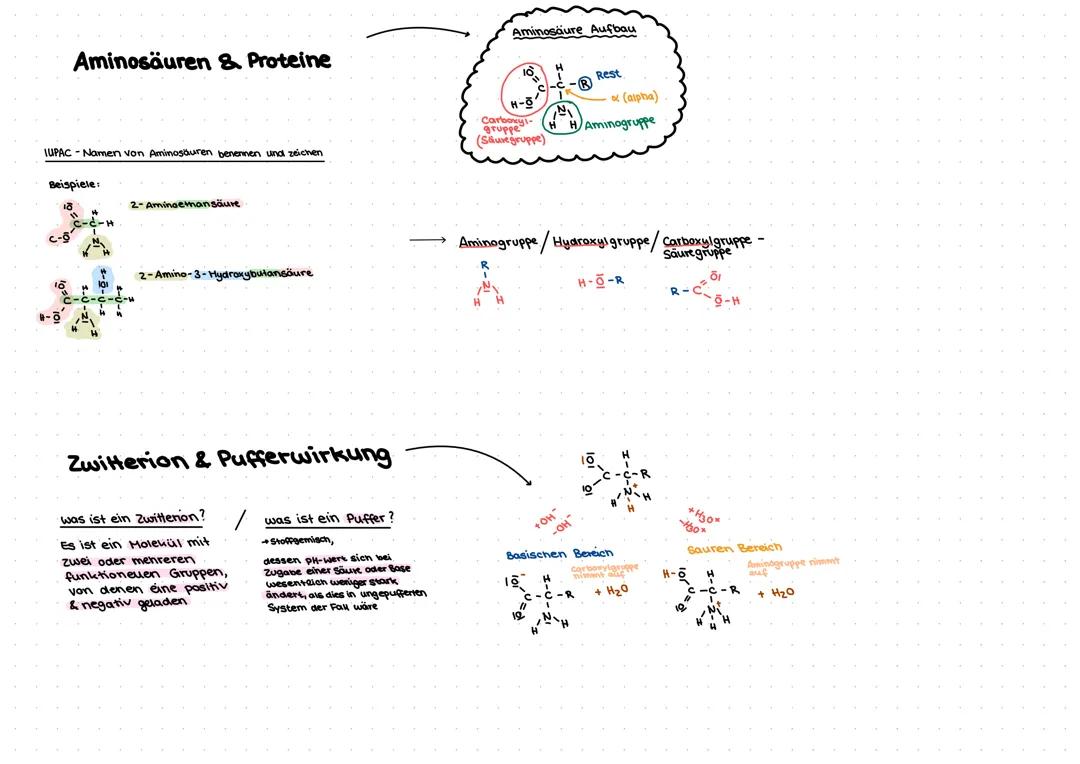 Aminosäuren & Proteine
Aminosäure Aufbau
Rest
α (alpha)
Aminogruppe
Carboxyl-
gruppe
(Säuregruppe)
IUPAC - Namen von Aminosäuren benennen und zeichen
Beispiele:
2-Aminoethansäure
2-Amino-3-Hydroxybutansäure
Aminogruppe / Hydroxylgruppe / Carboxylgruppe -
Säuregruppe
H-O-R
Zwitterion & Pufferwirkung
was ist ein Zwitterion? / was ist ein Puffer?
Es ist ein Molekül mit
zwei oder mehreren
funktionellen Gruppen,
von denen eine positiv
& negativ geladen
→ Stoffgemisch,
dessen pH-Wert sich bei
Zugabe einer Säure oder Base
wesentlich weniger stark
ändert, als dies in ungepufferten
System der Fall wäre
+OH⁻
-OH⁻
+H3O+
-H3O+
Basischen Bereich
Carboxylgruppe
nimmt auf
+ H2O
Sauren Bereich
Aminogruppe nimmt
auf
+ H2O